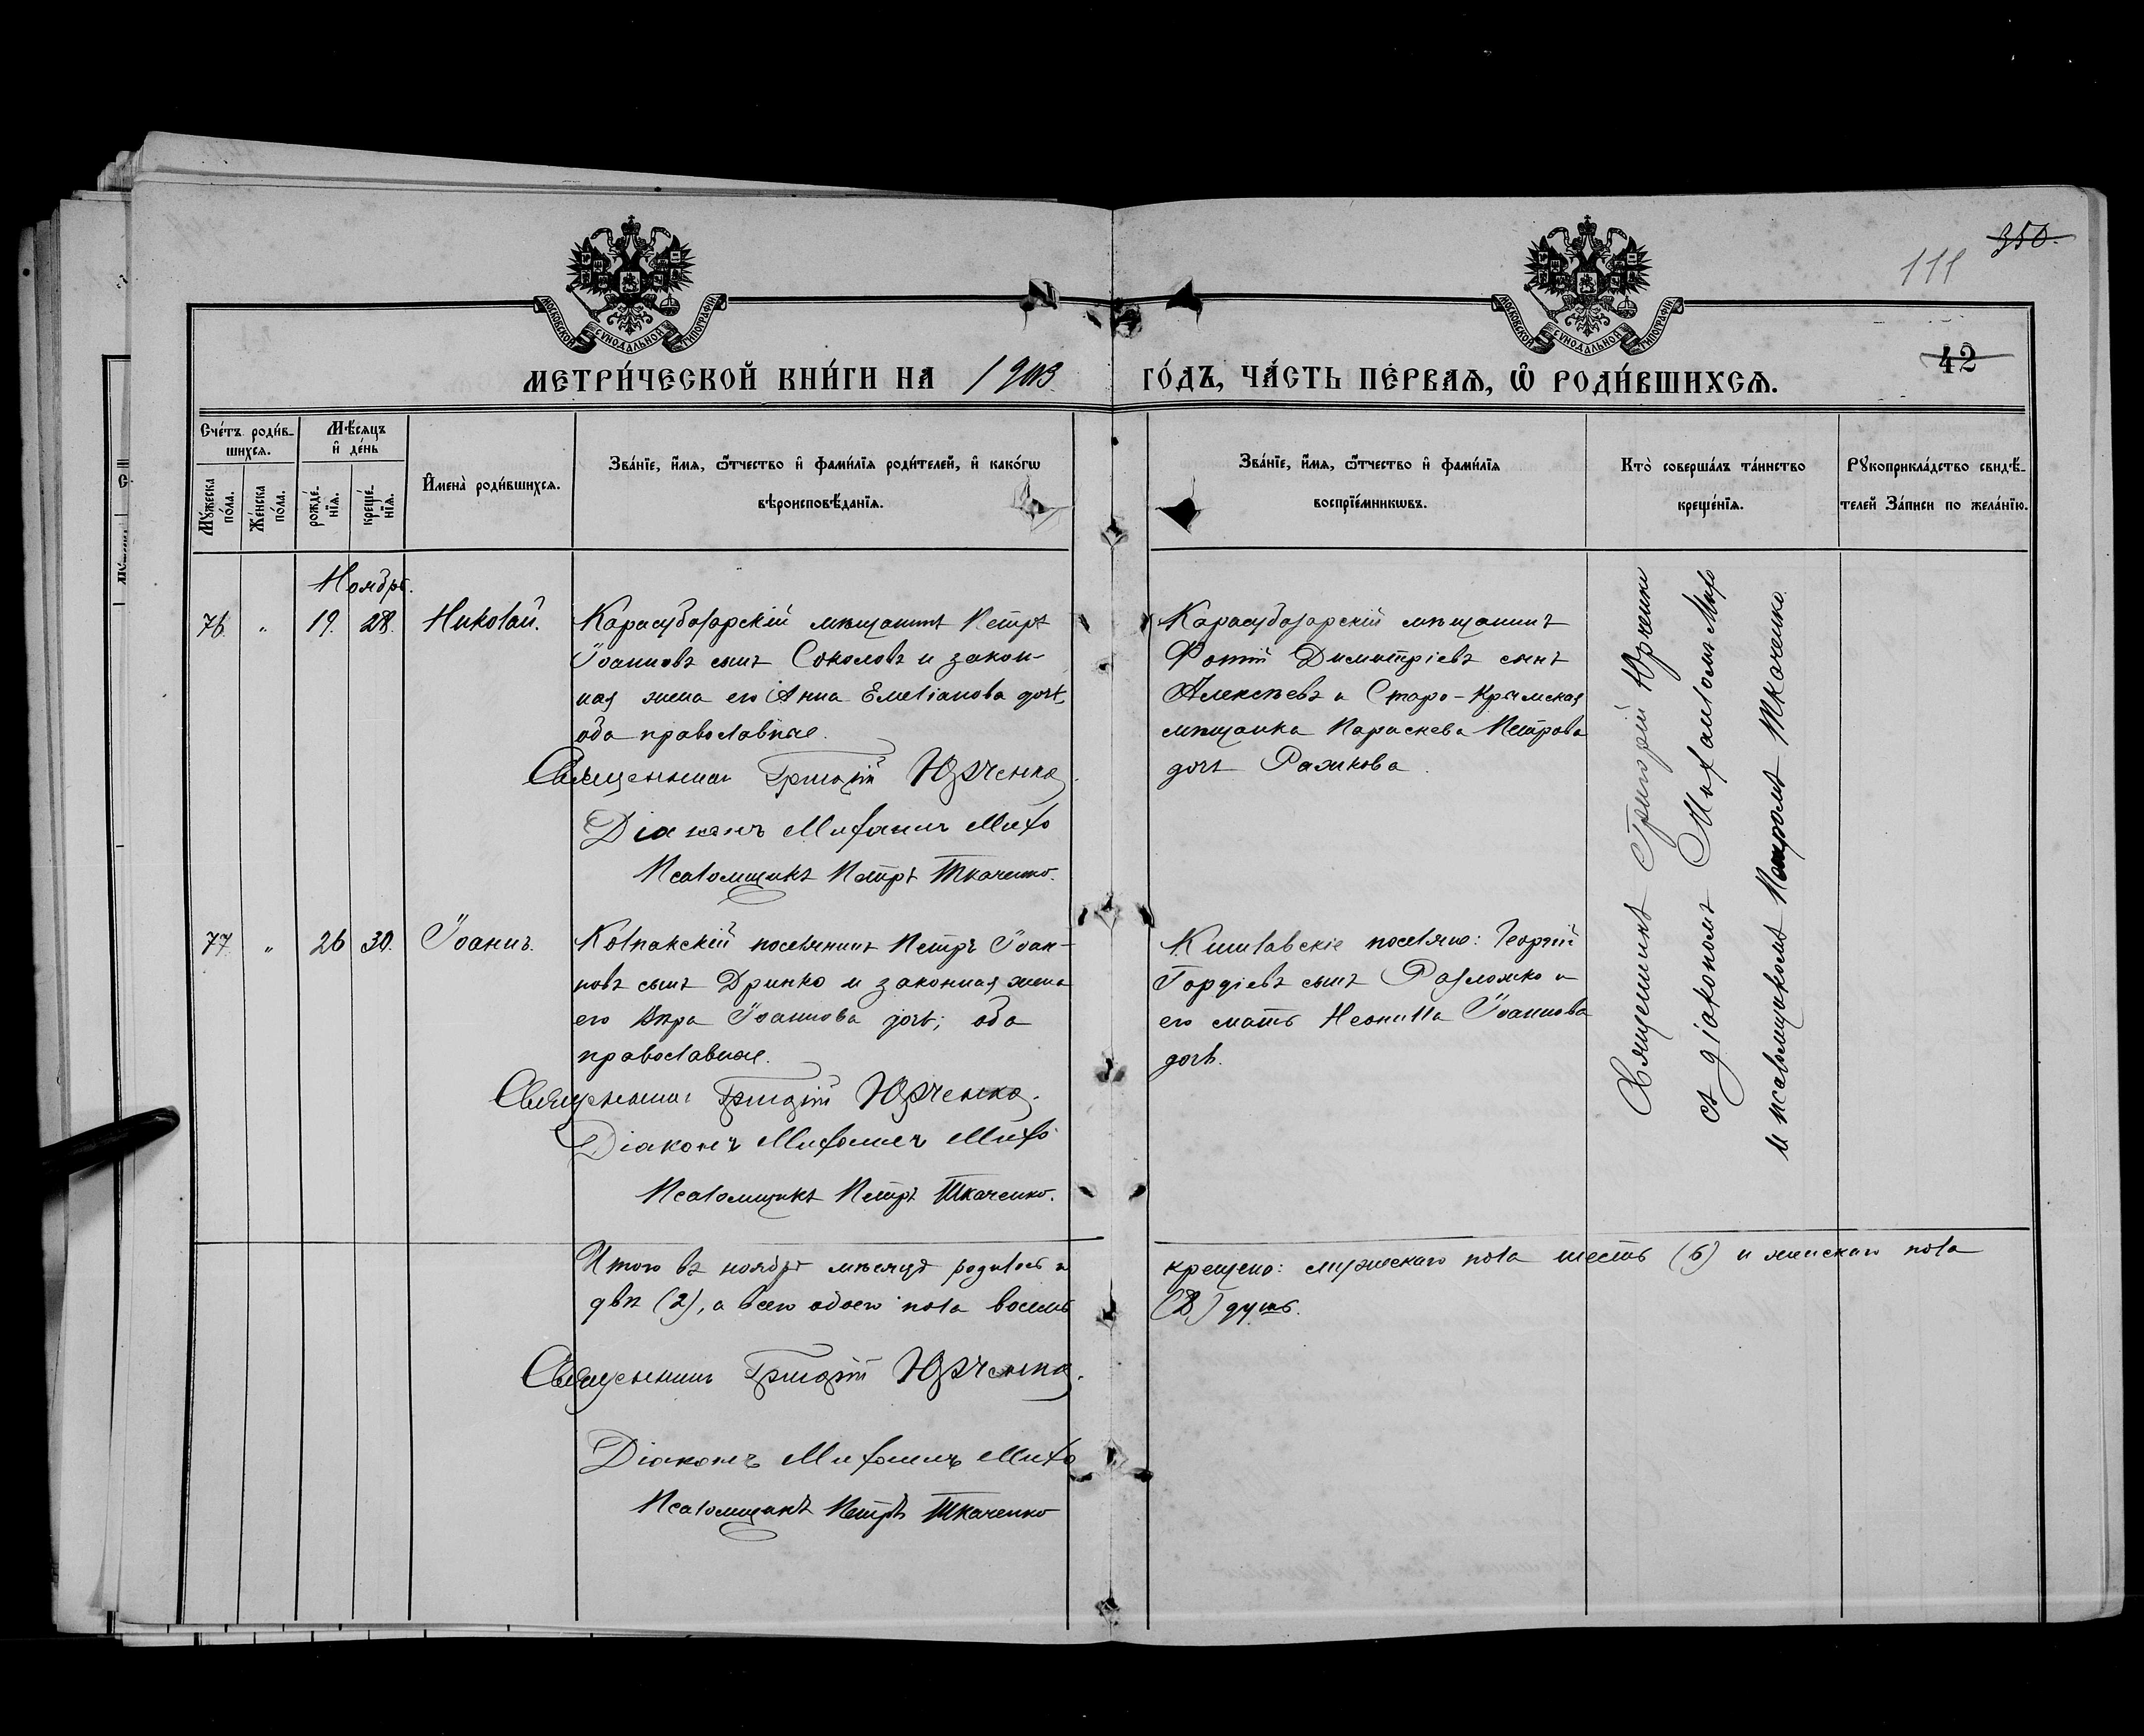 350.
111
42
МОСКОВСКОЙ СѴНОДАЛЬНОЙ ТИПОГРАФІИ
МОСКОВСКОЙ СѴНОДАЛЬНОЙ ТИПОГРАФІИ
МЕТРИ́ЧЕСКОЙ КНИ́ГИ НА 1903 ГО́ДЪ, ЧА́СТЬ ПЕ́РВАѦ, Ѽ РОДИ́ВШИХСѦ.
Сче́тъ роди́в-
шихсѧ.
Мꙋ́жеска
по́ла.
Же́нска
по́ла.
Мѣ́сѧцъ
и҆ де́нь
рожде́-
нїѧ.
креще́-
нїѧ.
И҆мена̀ роди́вшихсѧ.
Зва́нїе, и҆́мѧ, ѻ҆́тчество и҆ фами́лїѧ роди́телей, и҆ како́гѡ
вѣроисповѣ́данїѧ.
Зва́нїе, и҆́мѧ, ѻ҆́тчество и҆ фами́лїѧ
воспрїе́мникѡвъ.
Кто̀ соверша́лъ та́инство
креще́нїѧ.
Рꙋкоприкла́дство свидѣ́-
телей За́писи по жела́нїю.
Ноябрь.
76. " 19. 28. Николай.
Карасубазарскій мѣщанинъ Петръ
Іоанновъ сынъ Соколовъ и закон-
ная жена его Анна Емеліанова дочь,
оба православные.
Священникъ Григорій Юрченко.
Діаконъ Михаилъ Михо
Псаломщикъ Петръ Ткаченко.
Карасубазарскій мѣщанинъ
Фотій Димитріевъ сынъ
Алексѣевъ и Старо-Крымская
мѣщанка Параскева Петрова
дочь Разикова.
Священникъ Григорій Юрченко
съ діакономъ Михаиломъ Михо
и псаломщикомъ Петромъ Ткаченко.
77. " 26 30. Іоаннъ.
Колпакскій поселянинъ Петръ Іоан-
новъ сынъ Дринко и законная жена
его Вѣра Іоаннова дочь; оба
православные.
Священникъ Григорій Юрченко.
Діаконъ Михаилъ Михо
Псаломщикъ Петръ Ткаченко.
Кишлавскіе поселяне: Георгій
Гордіевъ сынъ Разломко и
его мать Неонилла Іоаннова
дочь.
Итого въ ноябрѣ мѣсяцѣ родилось и крещено: мужескаго пола шесть (6) и женскаго пола
двѣ (2), а всего обоего пола восемь (8) душъ.
Священникъ Григорій Юрченко.
Діаконъ Михаилъ Михо
Псаломщикъ Петръ Ткаченко